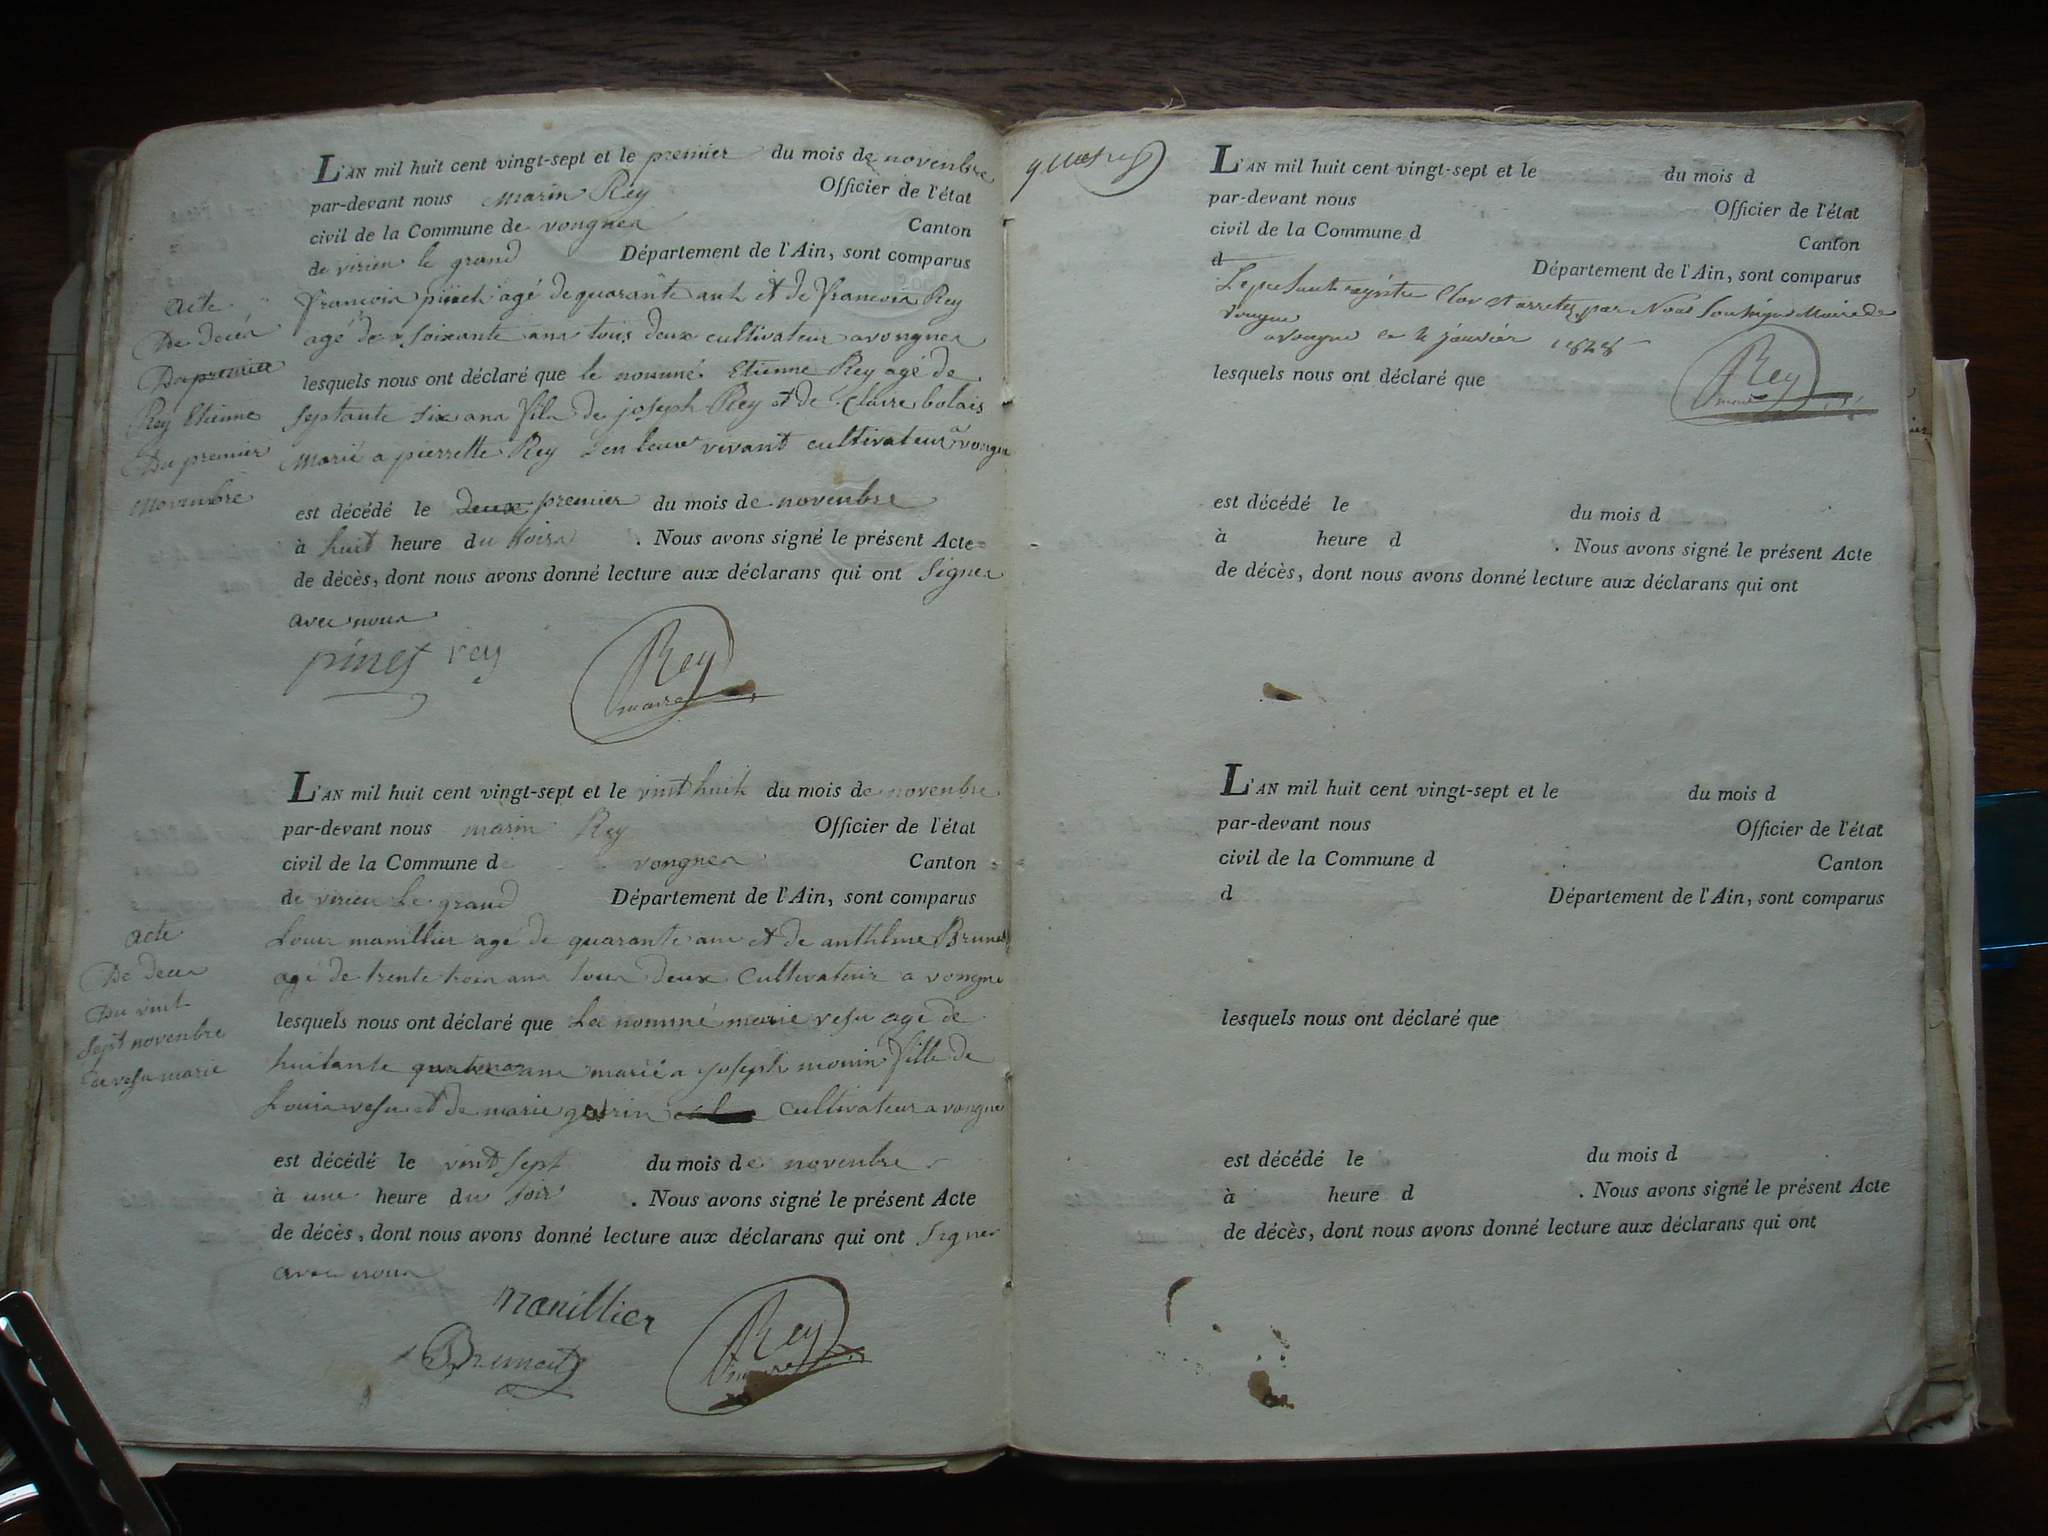 L'AN mil huit cent vingt-sept et le premier du mois de novenbre
par-devant nous marin Rey Officier de l'état
civil de la Commune de vongnes Canton
de virieu le grand Département de l'Ain, sont comparus
françois pinet agé de quarante ans et de françois Rey
agé de soixante ans tous deux cultivateur a vongnes
lesquels nous ont déclaré que le nommé Etienne Rey agé de
septante six ans fils de joseph Rey et de Claire bolais
Marié a pierrette Rey vivant cultivateur a vongne
est décédé le deux premier du mois de novenbre
à huit heure du soirs . Nous avons signé le présent Acte
de décès, dont nous avons donné lecture aux déclarans qui ont signes
avec nous
pinet rey
Rey
maire
acte
De decés
Du premier
Rey Etienne
Du premier
novenbre
L'AN mil huit cent vingt-sept et le vint huit du mois de novenbre
par-devant nous marin Rey Officier de l'état
civil de la Commune d vongnes Canton
de virieu le grand Département de l'Ain, sont comparus
Louis manillier agé de quarante ans et de anthelme Brunet
agé de trente trois ans tous deux cultivateur a vongne
lesquels nous ont déclaré que La nommé marie vesu agé de
huitante ans marié a joseph monin fille de
Louis vesu et de marie cultivateur a vongne
est décédé le vint sept du mois de novenbre
à une heure du soir . Nous avons signé le présent Acte
de décès, dont nous avons donné lecture aux déclarans qui ont signes
avec nous
manillier
Brunet
Rey
maire
acte
De deces
Du vint
sept novenbre
de vesu marie
L'AN mil huit cent vingt-sept et le du mois d
par-devant nous Officier de l'état
civil de la Commune d Canton
d Département de l'Ain, sont comparus
Le present registre Clos et arretez par Nous Soussigné Maire de
vongne
a vongne ce janvier 1828
lesquels nous ont déclaré que
Rey
maire
est décédé le du mois d
à heure d . Nous avons signé le présent Acte
de décès, dont nous avons donné lecture aux déclarans qui ont
L'AN mil huit cent vingt-sept et le du mois d
par-devant nous Officier de l'état
civil de la Commune d Canton
d Département de l'Ain, sont comparus
lesquels nous ont déclaré que
est décédé le du mois d
à heure d . Nous avons signé le présent Acte
de décès, dont nous avons donné lecture aux déclarans qui ont